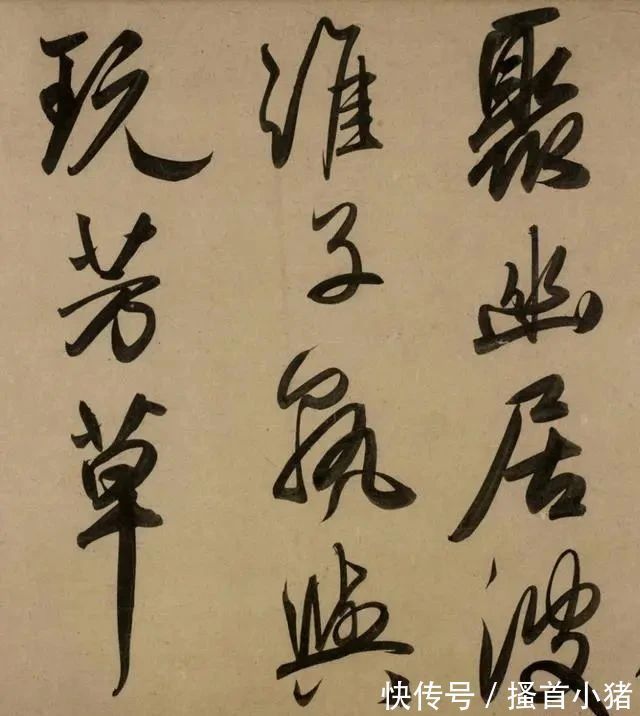 聚幽居
淮子孰與
玩芳草
快传号/搔首小猪